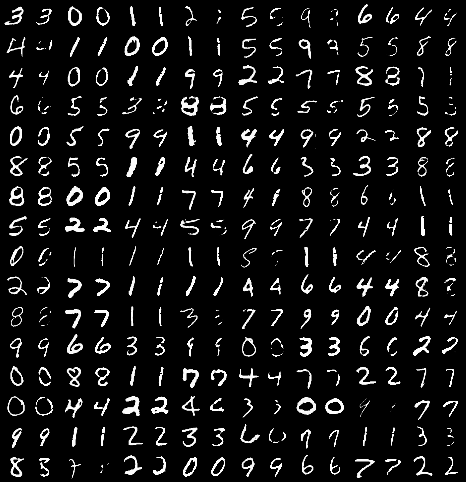 3 3 0 0 1 1 2 5 5 9 9 6 6 4 4
4 4 1 1 0 0 1 1 5 5 9 9 5 5 8 8
4 4 0 0 1 1 9 9 2 2 7 7 8 8 1 1
6 6 5 5 3 3 8 8 5 5 5 5 5 5 5 5
0 0 5 5 9 9 1 1 4 4 9 9 2 2 8 8
8 8 5 5 1 1 4 4 6 6 3 3 3 3 8 8
8 8 0 0 1 1 7 7 4 4 8 8 6 6 1 1
5 5 2 2 4 4 5 5 9 9 7 7 4 4 1 1
0 0 1 1 1 1 1 1 8 1 1 4 4 8 8
2 2 7 7 1 1 1 1 4 4 6 6 4 4 8 8
8 8 7 7 1 1 3 7 7 9 9 0 0 4 4
9 9 6 6 3 3 9 9 0 0 3 3 6 6 2 2
0 0 8 8 1 1 7 7 4 4 7 7 2 2 7 7
0 0 4 4 2 2 4 6 3 3 0 0 9 7 7
9 9 1 1 2 2 3 3 6 0 7 7 1 1 3 3
8 3 7 2 2 0 0 9 9 6 6 7 7 2 2